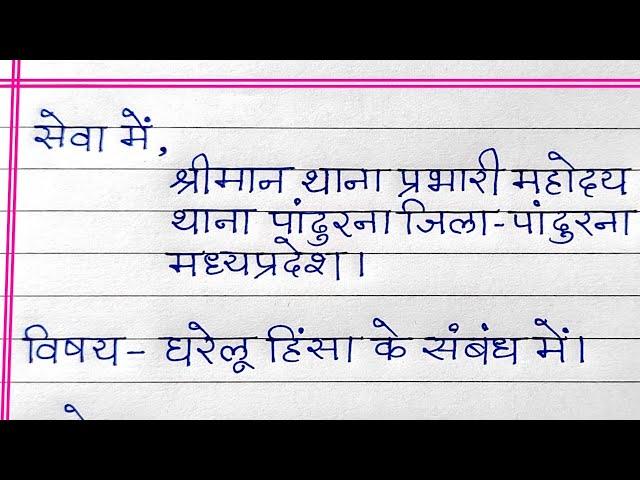 सेवा में,
श्रीमान थाना प्रभारी महोदय
थाना पांढुरना जिला-पांढुरना
मध्यप्रदेश।
विषय- घरेलू हिंसा के संबंध में।